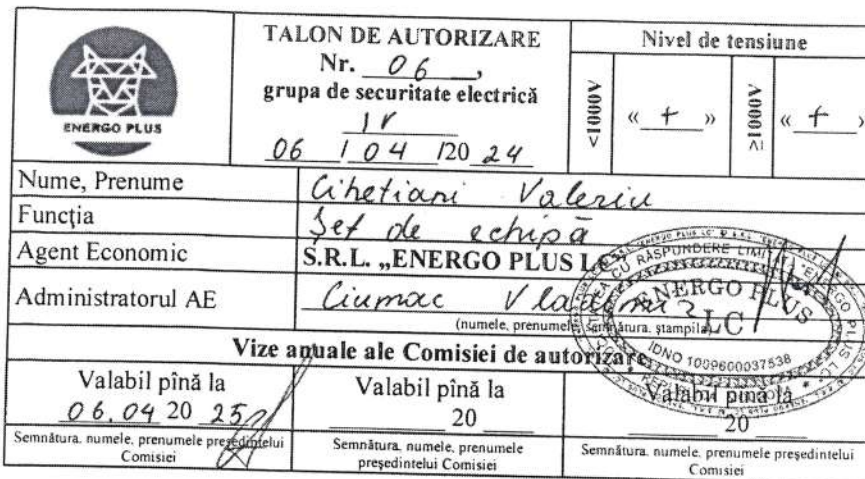 ENERGO PLUS
TALON DE AUTORIZARE
Nr. 06,
grupa de securitate electrică
IV
06 / 04 /20 24
Nivel de tensiune
<1000V
« + »
≥1000V
« + »
Nume, Prenume Cihetiani Valeriu
Funcția Șef de echipă
Agent Economic S.R.L. „ENERGO PLUS LC”
Administratorul AE Ciumac Vladimir
(numele, prenumele, semnătura, ștampila)
CU RĂSPUNDERE LIMITATĂ
ENERGO PLUS
LC
IDNO 1009600037538
Vize anuale ale Comisiei de autorizare
Valabil pînă la
06.04 20 25
Semnătura, numele, prenumele președintelui
Comisiei
Valabil pînă la
20
Semnătura, numele, prenumele
președintelui Comisiei
Valabil pînă la
20
Semnătura, numele, prenumele președintelui
Comisiei